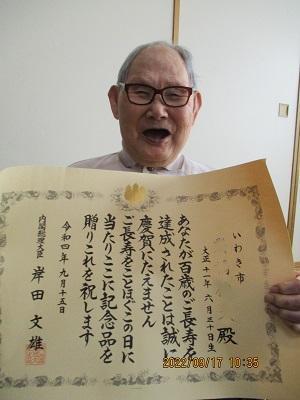 いわき市
殿
大正十一年六月三十日生
あなたが百歳のご長寿を
達成されたことは誠に
慶賀にたえません
ご長寿をことほぐこの日に
当たりここに記念品を
贈りこれを祝します
令和四年九月十五日
内閣総理大臣 岸田文雄
2022/09/17 10:35